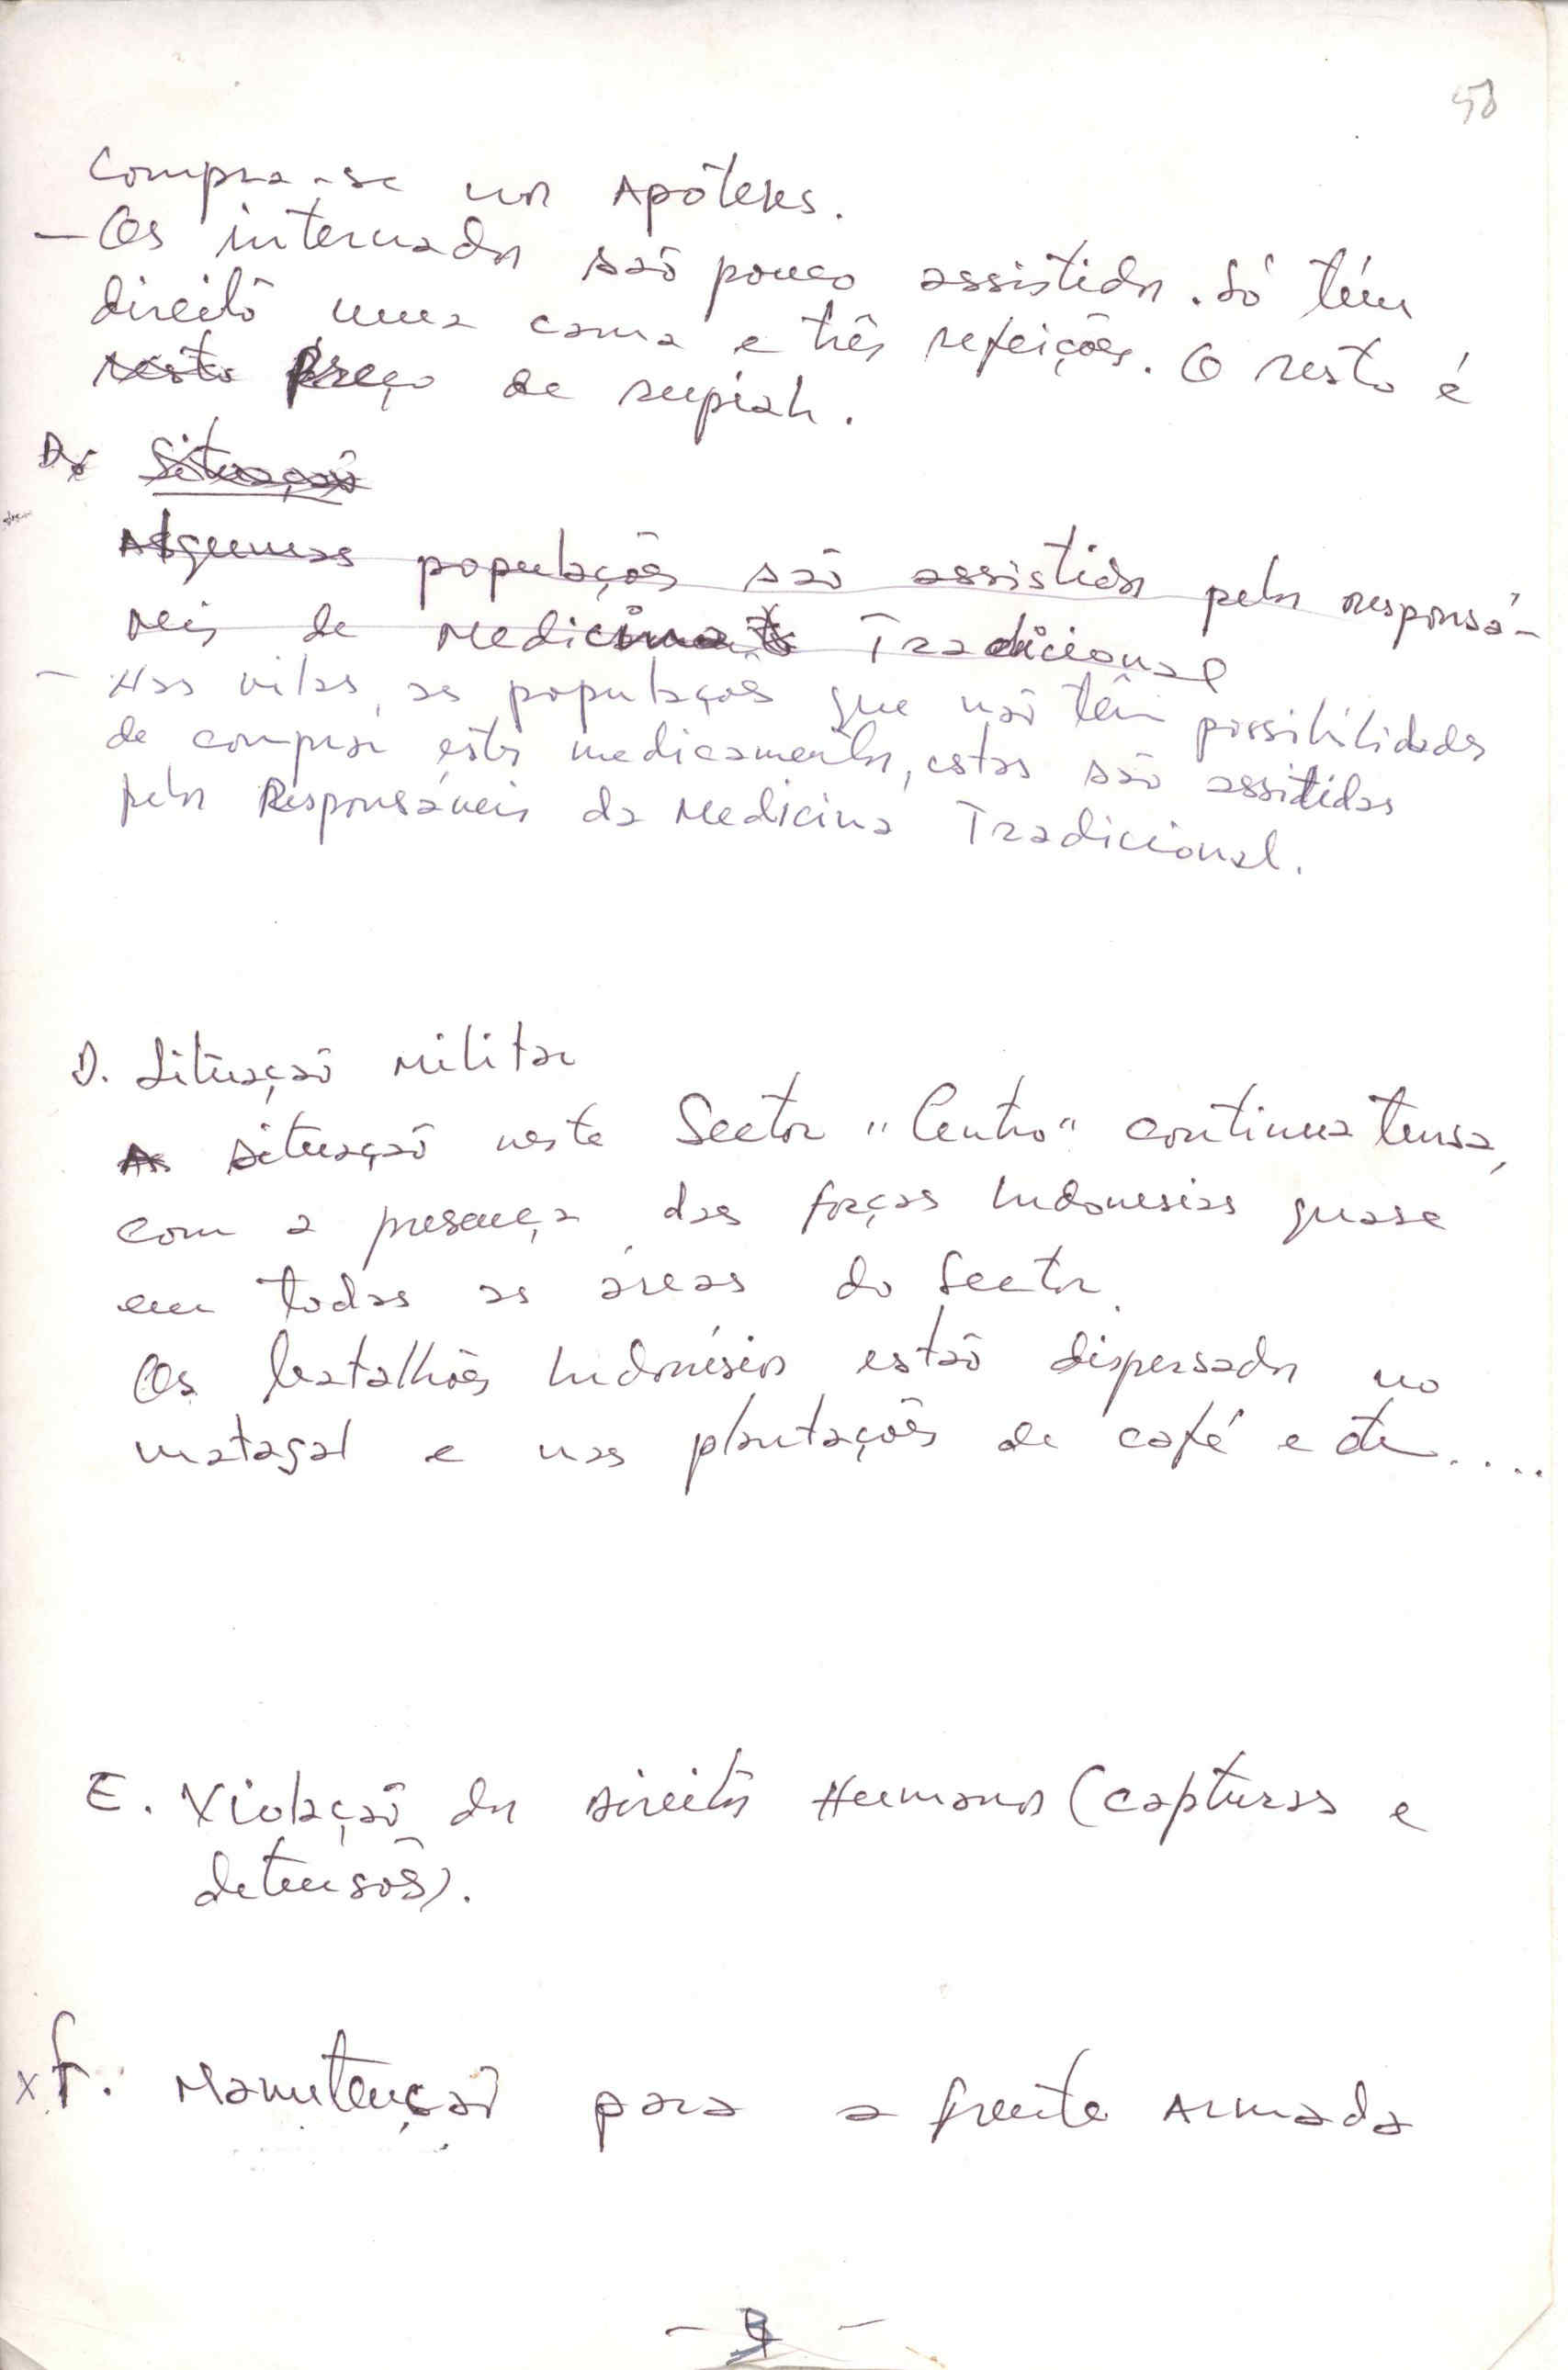 58
Compra-se nos Apóteks.
- Os internados são pouco assistidos. Só têm
direito uma cama e três refeições. O resto é
resto Preço de rupiah.
D. Situação
Algumas populações são assistidos pelos responsá-
veis de Medicina Tradicional
- Nas vilas, as populações que não têm possibilidades
de comprar estes medicamentos, estas são assitidas
pelos Responsáveis da Medicina Tradicional.
D. Situação Militar
A situação neste Sector "Centro" continua tensa,
com a presença das forças Indonesias quase
em todas as áreas do Sector.
Os batalhões Indonésios estão dispersados no
matagal e nas plantações de café e etc....
E. Violação dos Direitos Humanos (capturas e
detensões).
x F. Manutenção para a frente Armada
- 4 -